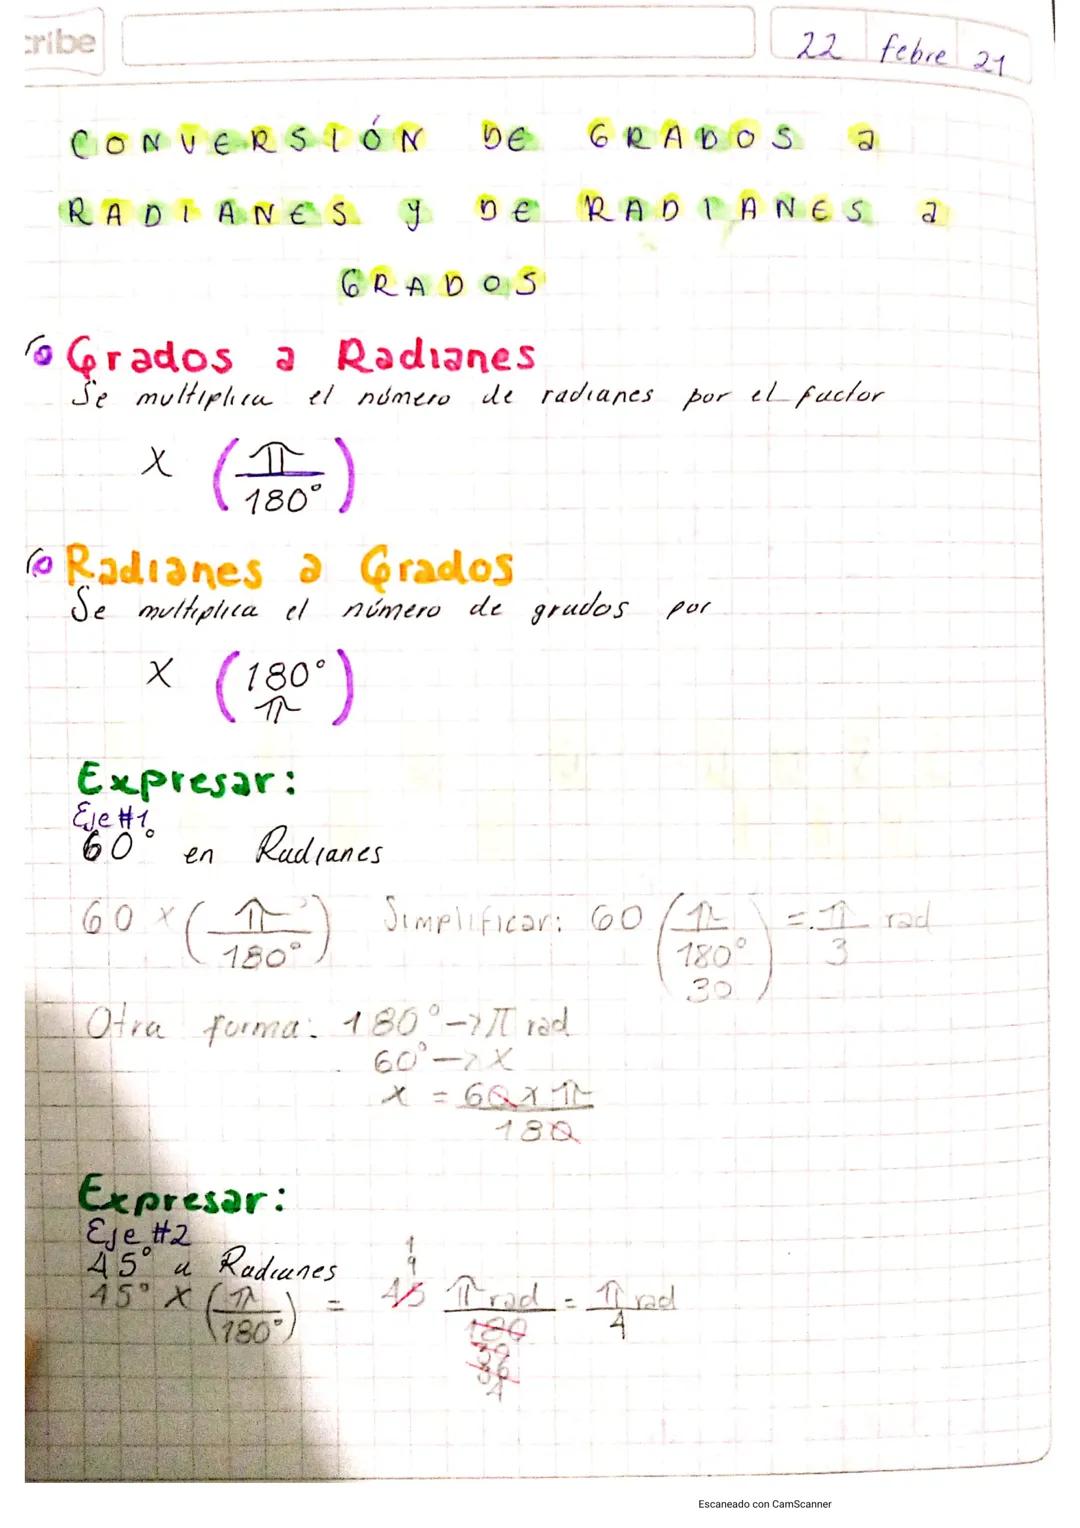 cribe
22 febre 21
CONVERSIÓN DE GRADOS a
RADIANES y DE RADIANES a
GRADOS
Grados a Radianes
Se multiplica el número de radianes por el factor
x (π/180°)
Radianes a Grados
Se multiplica el número de grados por
x (180°/π)
Expresar:
Eje #1
60° en Radianes
60 x (π/180°) Simplificar: 60 (π/180° 30) = π/3 rad
Otra forma: 180° -> π rad
60° -> x
x = 60 x π
180
Expresar:
Eje #2
45° a Radianes
1
9
45° x (π/180°) = 45 π rad = π rad
180 4
36
4
Escaneado con CamScanner